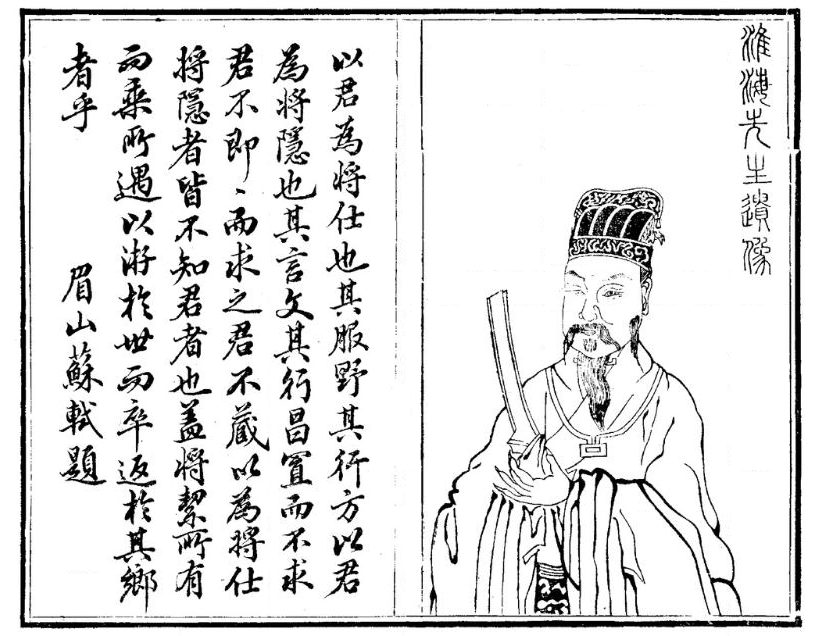 淮海先生遺像
以君為將仕也其服野其行方以君
為將隱也其言文其行昌置而不求
君不即〻而求之君不藏以為將仕
將隱者皆不知君者也蓋將絜所有
而乘所遇以游於世而卒返於其鄉
者乎 眉山蘇軾題